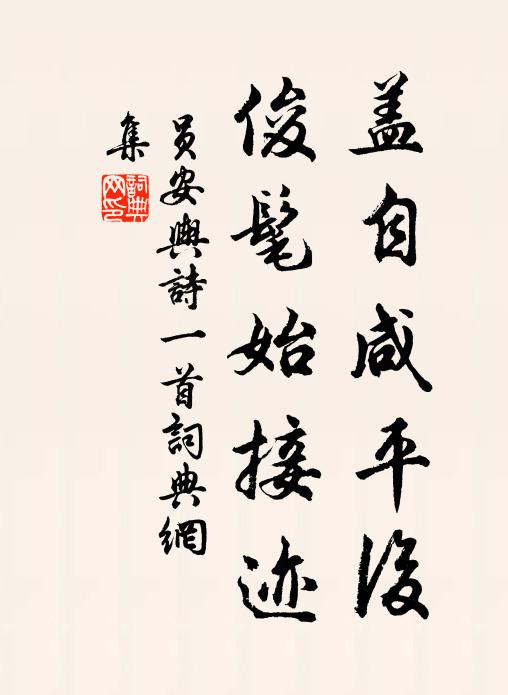 盖自咸平後
俊髦始接迹
员安輿詩一首詞典網
集
詞典
网印